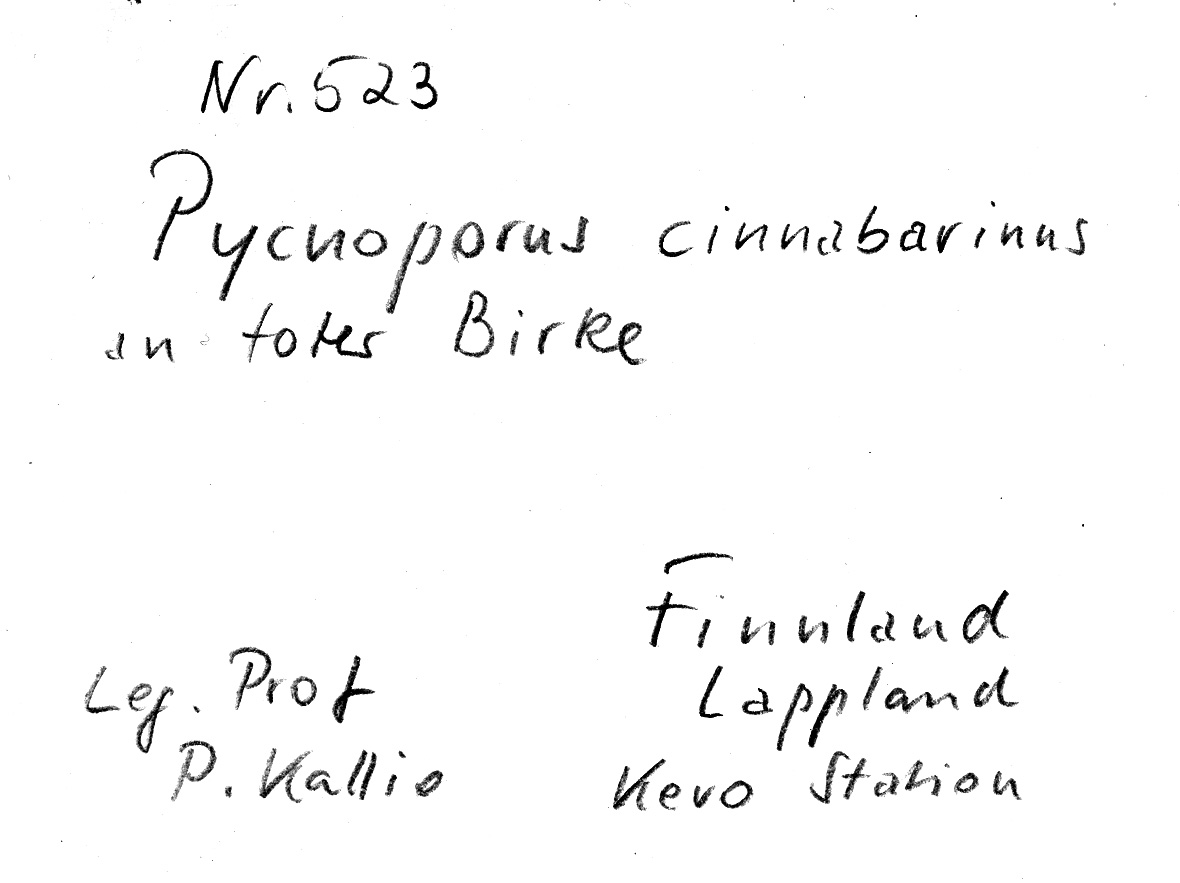 Nr. 523
Pycnoporus cinnabarinus
an toter Birke
Leg. Prof
P. Kallio
Finnland
Lappland
Kevo Station